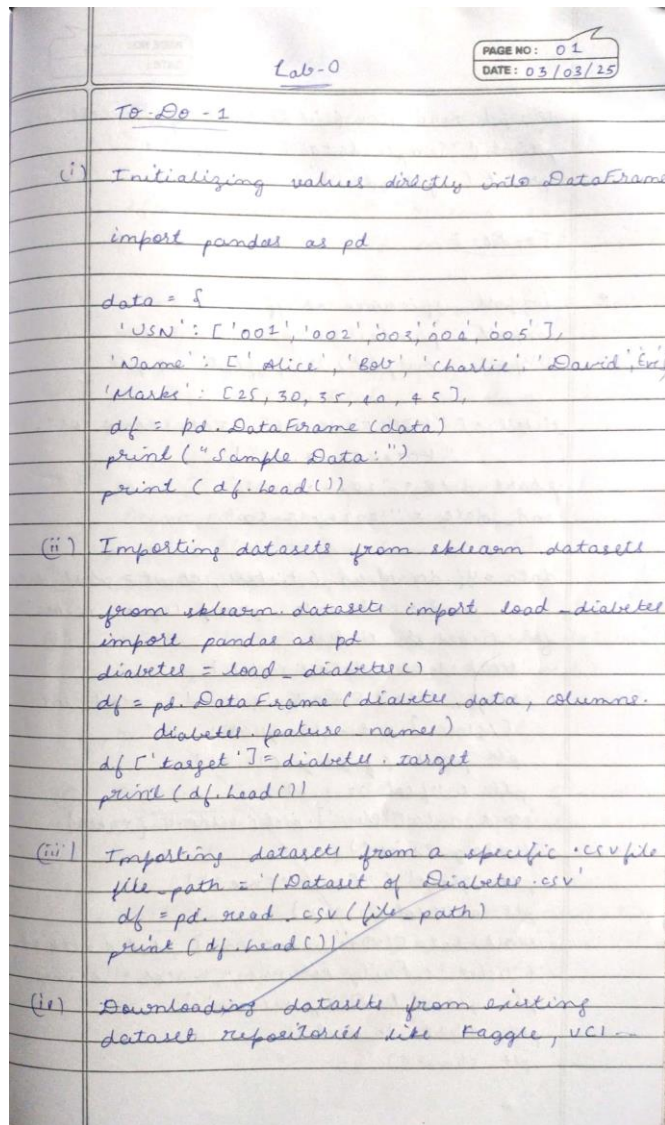 PAGE NO: 01
DATE: 03/03/25
Lab-0
To-Do-1
(i) Initializing values directly into DataFrame
import pandas as pd
data = {
'USN': ['001', '002', '003', '004', '005'],
'Name': ['Alice', 'Bob', 'Charlie', 'David', 'Eve'],
'Marks': [25, 30, 35, 40, 45],
df = pd.DataFrame(data)
print("Sample Data:")
print(df.head())
(ii) Importing datasets from sklearn datasets
from sklearn.datasets import load_diabetes
import pandas as pd
diabetes = load_diabetes()
df = pd.DataFrame(diabetes.data, columns.
diabetes.feature names)
df['target'] = diabetes.target
print(df.head())
(iii) Importing datasets from a specific .csv file
file_path = '/Dataset of Diabetes.csv'
df = pd.read_csv(file_path)
print(df.head())
(iv) Downloading datasets from existing
dataset repositories like Kaggle, UCI